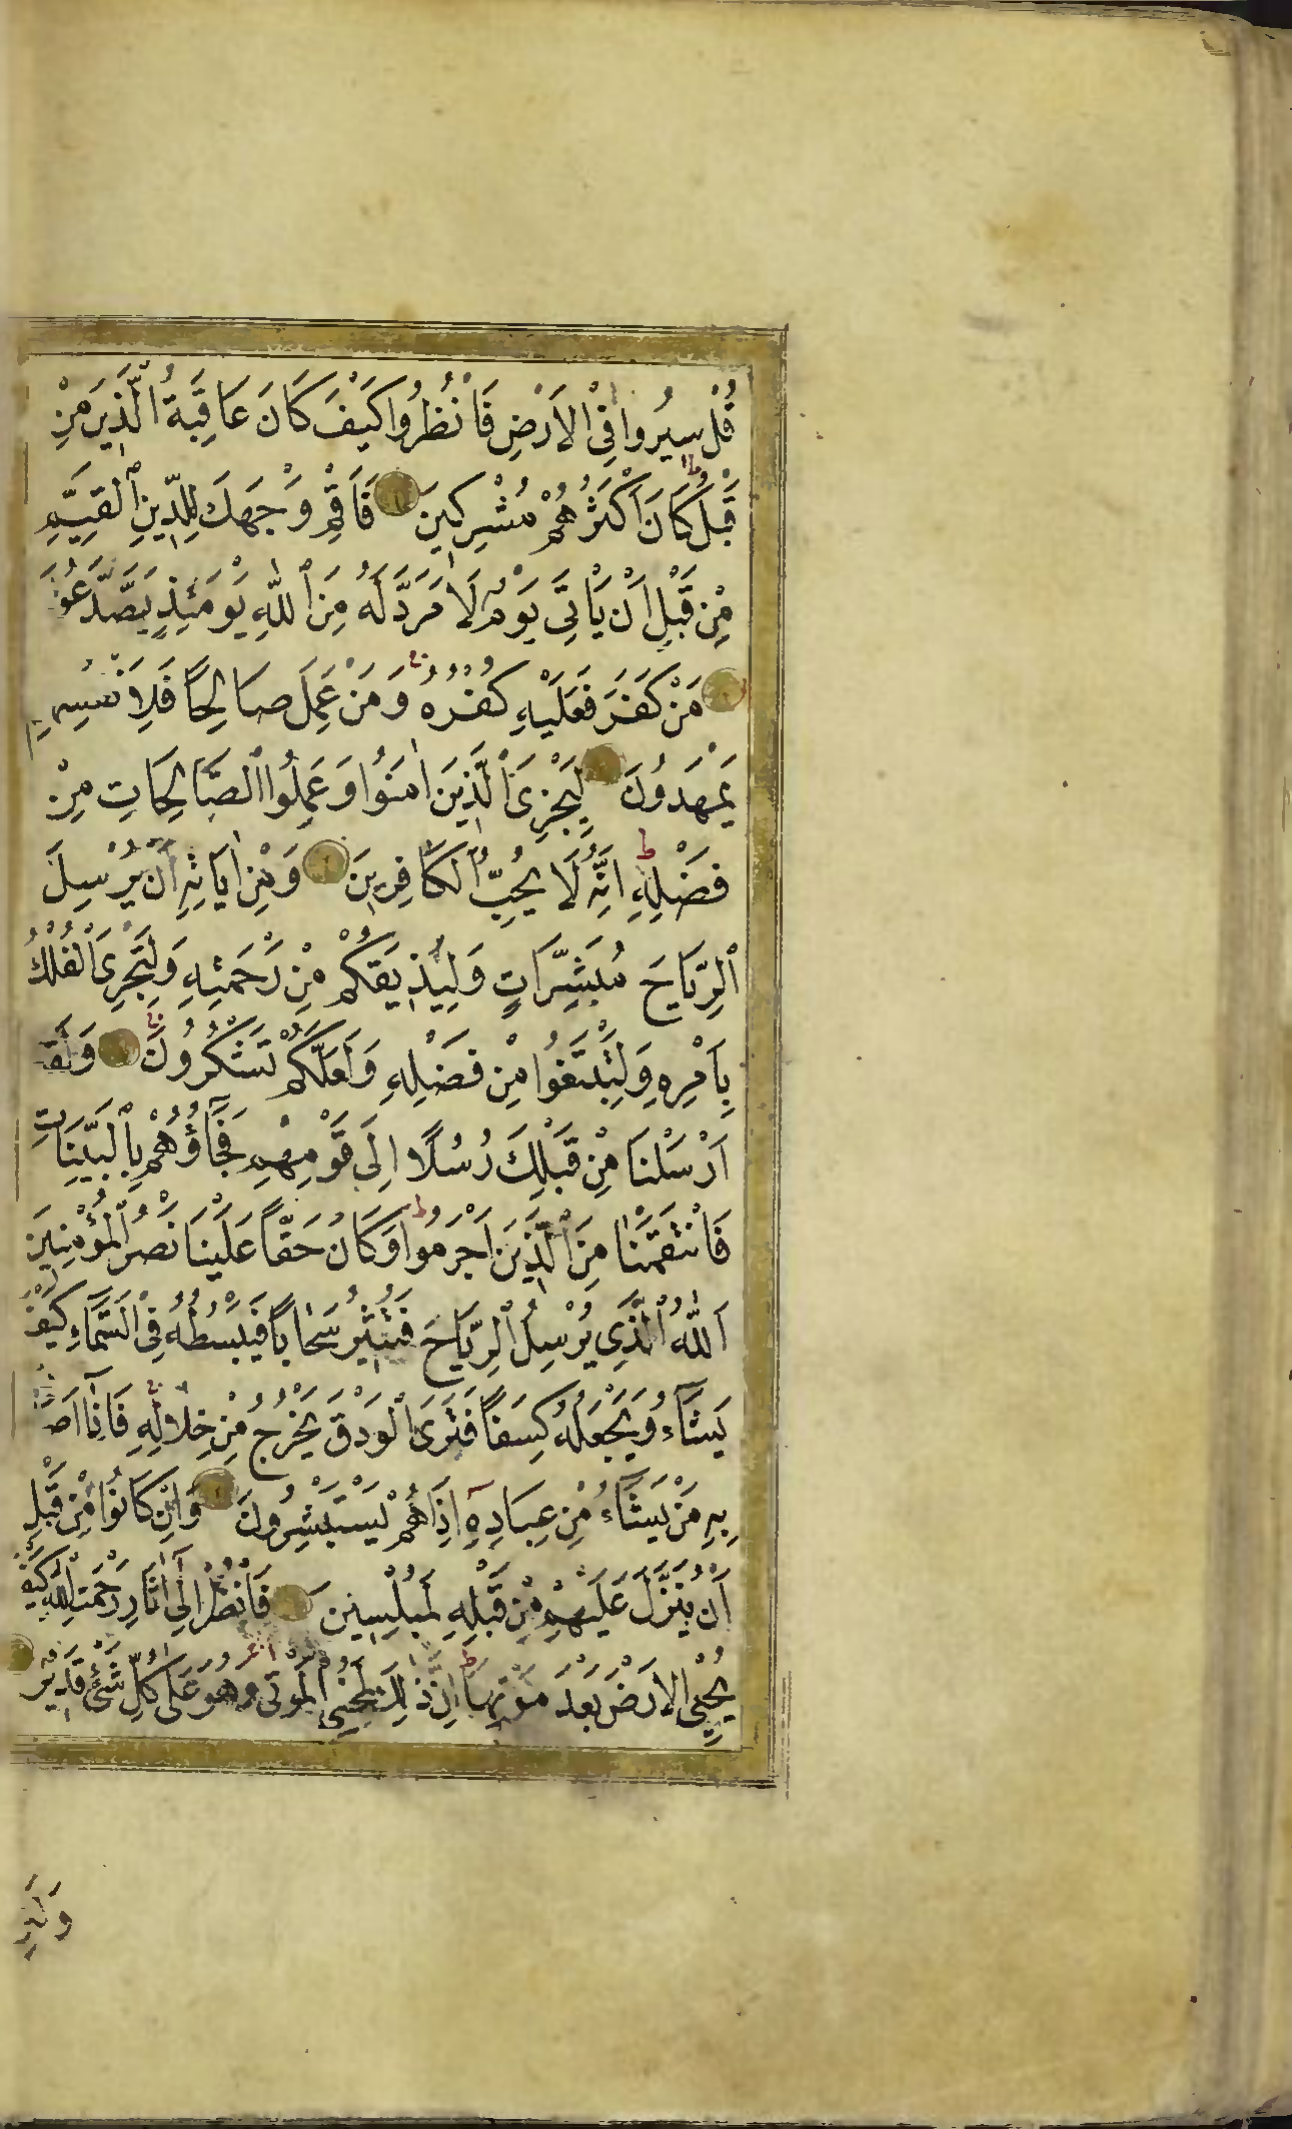 قُلْ سِيرُوا فِي الْاَرْضِ فَانْظُرُوا كَيْفَ كَانَ عَاقِبَةُ الَّذِينَ مِنْ
قَبْلُ كَانَ اَكْثَرُهُمْ مُشْرِكِينَ فَاَقِمْ وَجْهَكَ لِلدِّينِ الْقَيِّمِ
مِنْ قَبْلِ اَنْ يَاْتِيَ يَوْمٌ لَا مَرَدَّ لَهُ مِنَ اللّٰهِ يَوْمَئِذٍ يَصَّدَّعُونَ
مَنْ كَفَرَ فَعَلَيْهِ كُفْرُهُ وَمَنْ عَمِلَ صَالِحًا فَلِاَنْفُسِهِمْ
يَمْهَدُونَ لِيَجْزِيَ الَّذِينَ اٰمَنُوا وَعَمِلُوا الصَّالِحَاتِ مِنْ
فَضْلِهِ اِنَّهُ لَا يُحِبُّ الْكَافِرِينَ وَمِنْ اٰيَاتِهِ اَنْ يُرْسِلَ
الرِّيَاحَ مُبَشِّرَاتٍ وَلِيُذِيقَكُمْ مِنْ رَحْمَتِهِ وَلِتَجْرِيَ الْفُلْكُ
بِاَمْرِهِ وَلِتَبْتَغُوا مِنْ فَضْلِهِ وَلَعَلَّكُمْ تَشْكُرُونَ وَلَقَدْ
اَرْسَلْنَا مِنْ قَبْلِكَ رُسُلًا اِلَى قَوْمِهِمْ فَجَآؤُهُمْ بِالْبَيِّنَاتِ
فَانْتَقَمْنَا مِنَ الَّذِينَ اَجْرَمُوا وَكَانَ حَقًّا عَلَيْنَا نَصْرُ الْمُؤْمِنِينَ
اَللّٰهُ الَّذِي يُرْسِلُ الرِّيَاحَ فَتُثِيرُ سَحَابًا فَيَبْسُطُهُ فِي السَّمَاءِ كَيْفَ
يَشَآءُ وَيَجْعَلُهُ كِسَفًا فَتَرَى الْوَدْقَ يَخْرُجُ مِنْ خِلَالِهِ فَاِذَآ اَصَابَ
بِهِ مَنْ يَشَآءُ مِنْ عِبَادِهِٓ اِذَا هُمْ يَسْتَبْشِرُونَ وَاِنْ كَانُوا مِنْ قَبْلِ
اَنْ يُنَزَّلَ عَلَيْهِمْ مِنْ قَبْلِهِ لَمُبْلِسِينَ فَانْظُرْ اِلَٓى اٰثَارِ رَحْمَتِ اللّٰهِ كَيْفَ
يُحْيِي الْاَرْضَ بَعْدَ مَوْتِهَا اِنَّ ذٰلِكَ لَمُحْيِي الْمَوْتٰى وَهُوَ عَلٰى كُلِّ شَيْءٍ قَدِيرٌ
وَلَئِنْ